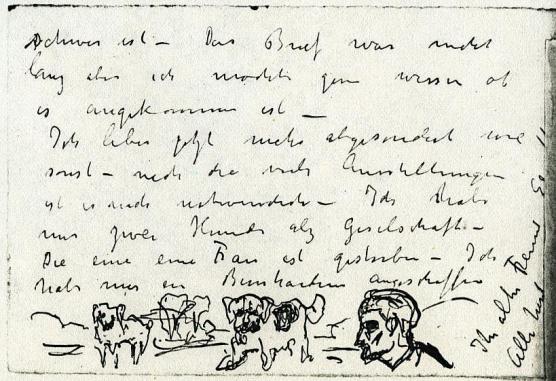 schwer ist – Das Brief war nicht
lang aber ich möchte gern wissen ob
es angekommen ist –
Ich lebe jetzt mehr abgesondert wie
sonst – nach die viele Ausstellungen
ist es auch notwendich – Ich habe
nur zwei Hunde als Geselschaft –
Die eine eine Frau ist gestorben – Ich
habe nur en Bernhardiner angeschaffen
Ihr alter Freund